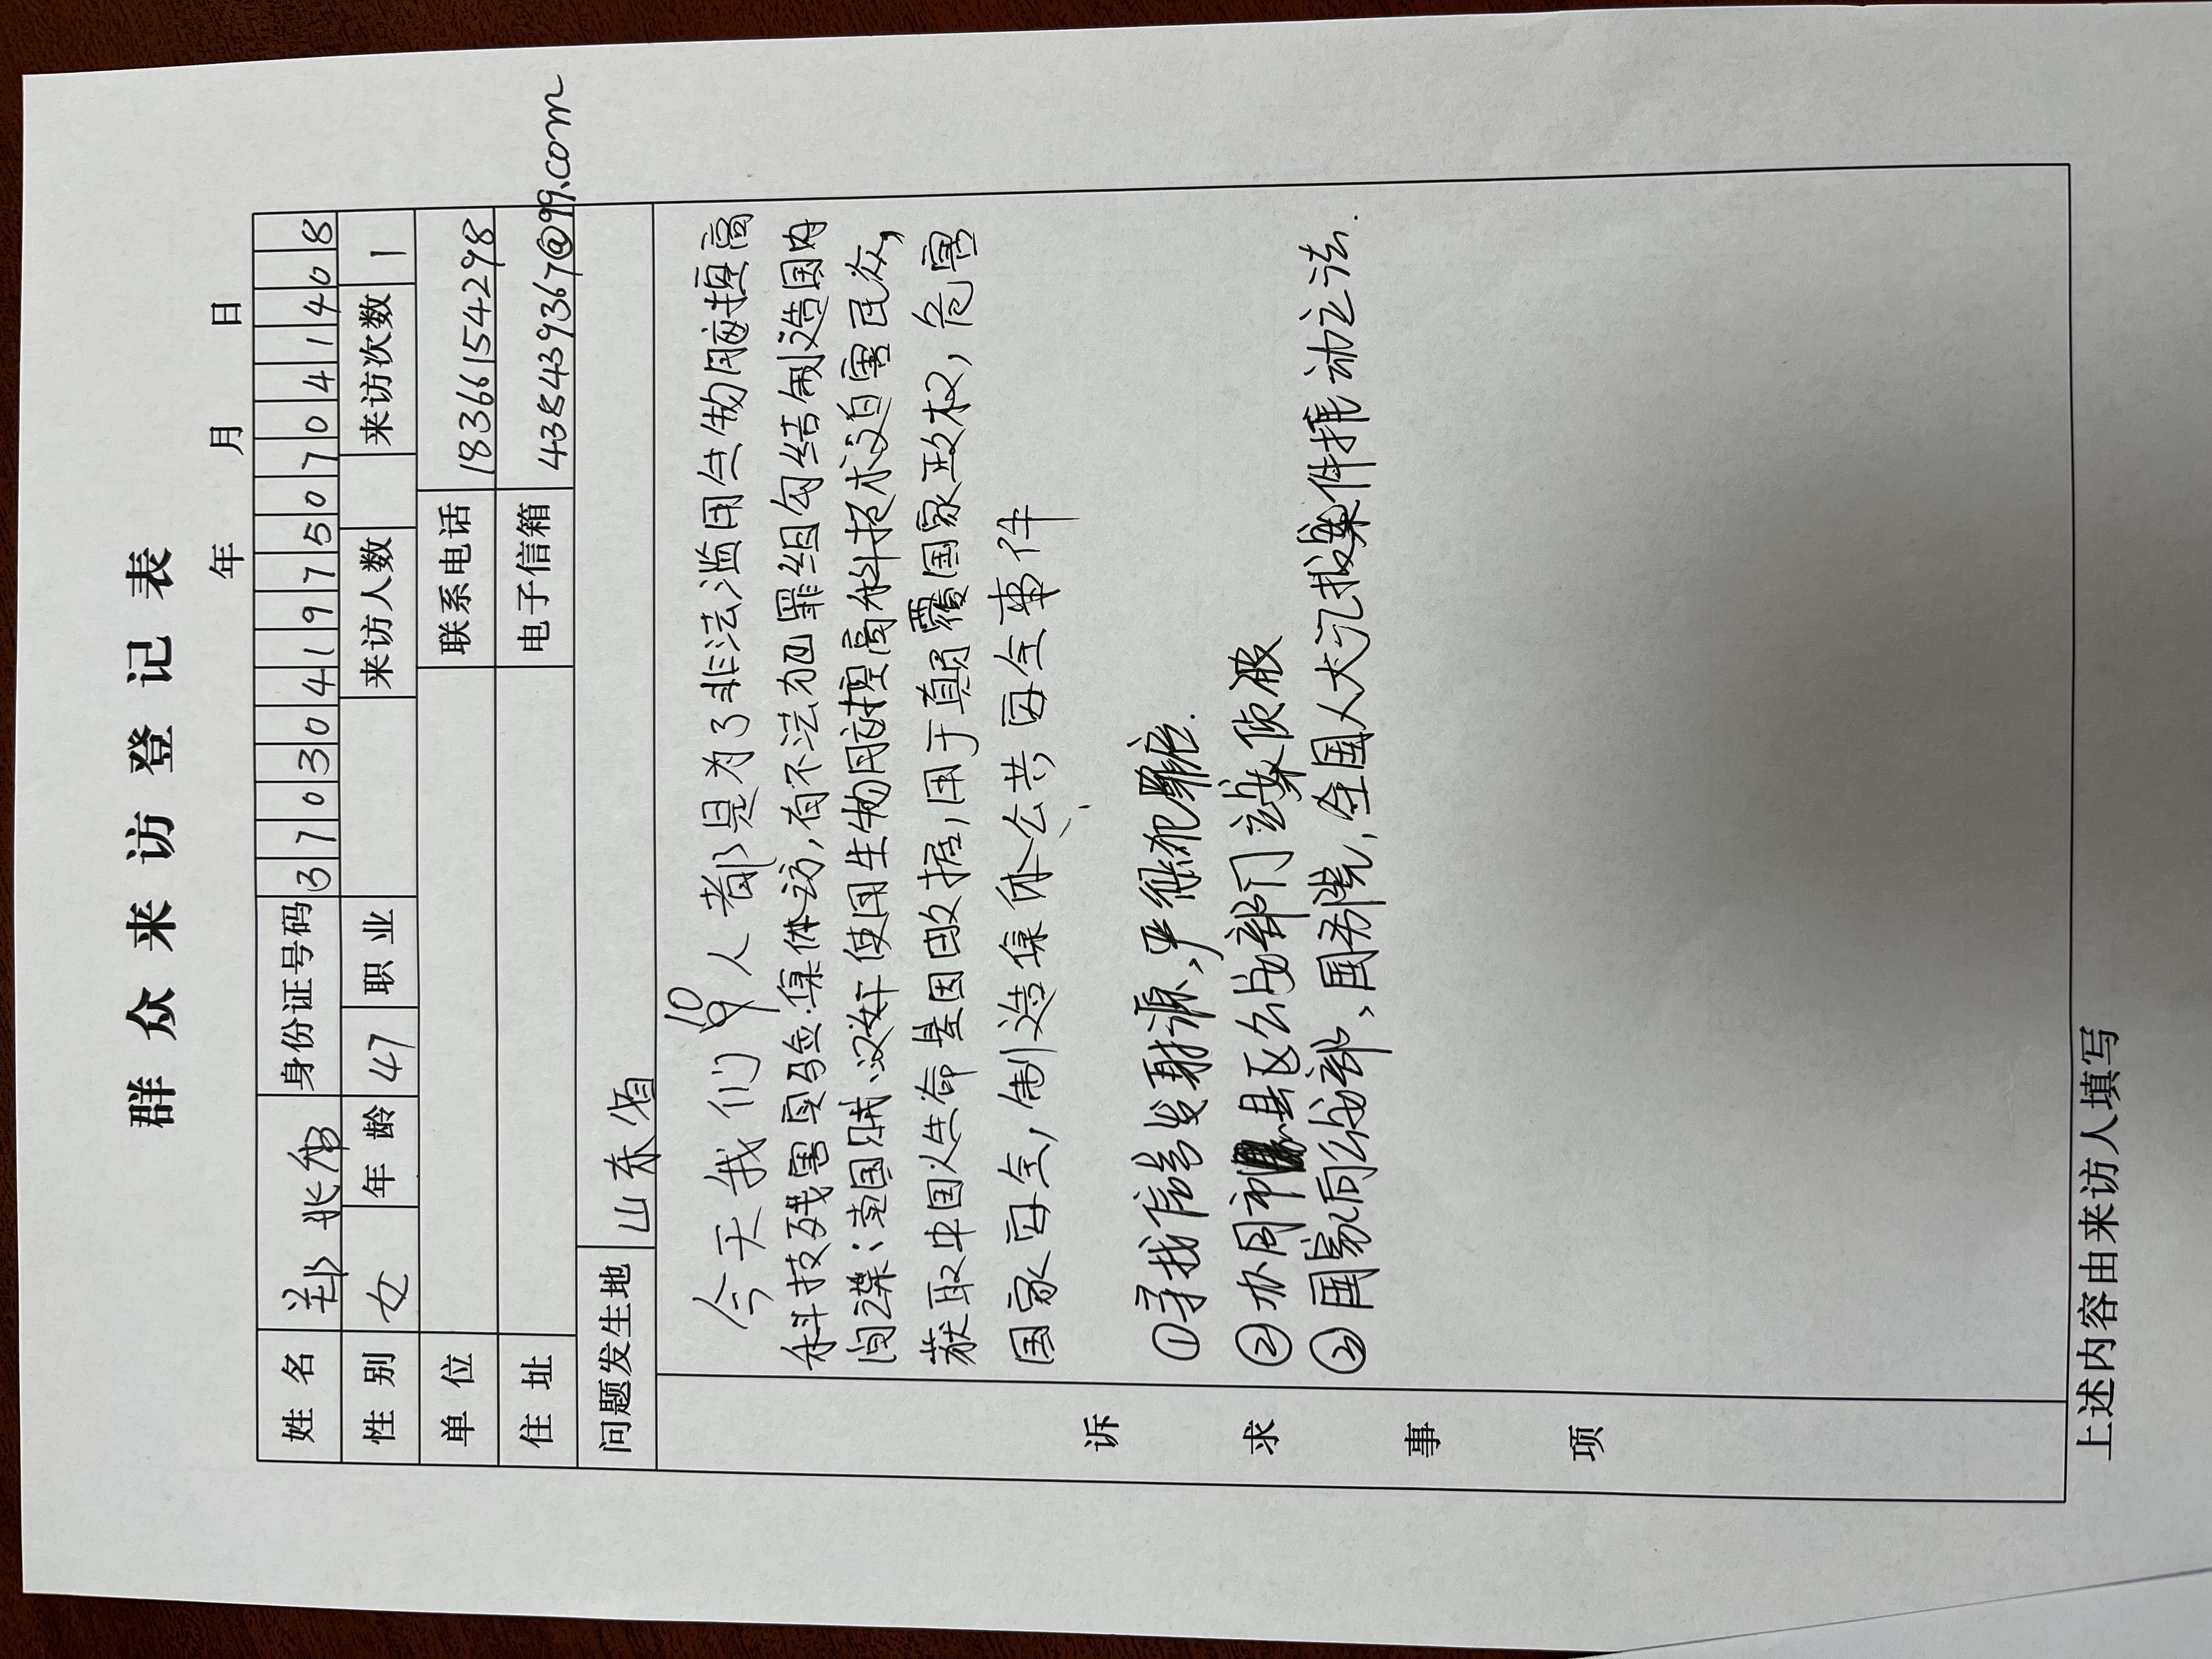 群众来访登记表
年 月 日
姓名 身份证号码 370304197507041408
性别 女 年龄 47 职业 来访人数 来访次数 1
单位 联系电话 18366154298
住址 电子信箱 438439367@qq.com
问题发生地 山东省
诉求事项
今天我们10人都是为了非法滥用生物脑控高
科技残害实验.集体访,有不法犯罪组勾结制造国内
间谍:卖国贼.汉奸使用生物脑控高科技术迫害民众,
获取中国人生命基因数据,用于颠覆国家政权,危害
国家安全,制造集体公共安全事件
①寻找信号发射源,严惩犯罪者.
②办周市县区公安部门立案侦破
③国家同公安部、国务院,全国人大汇报案件推动立法.
上述内容由来访人填写